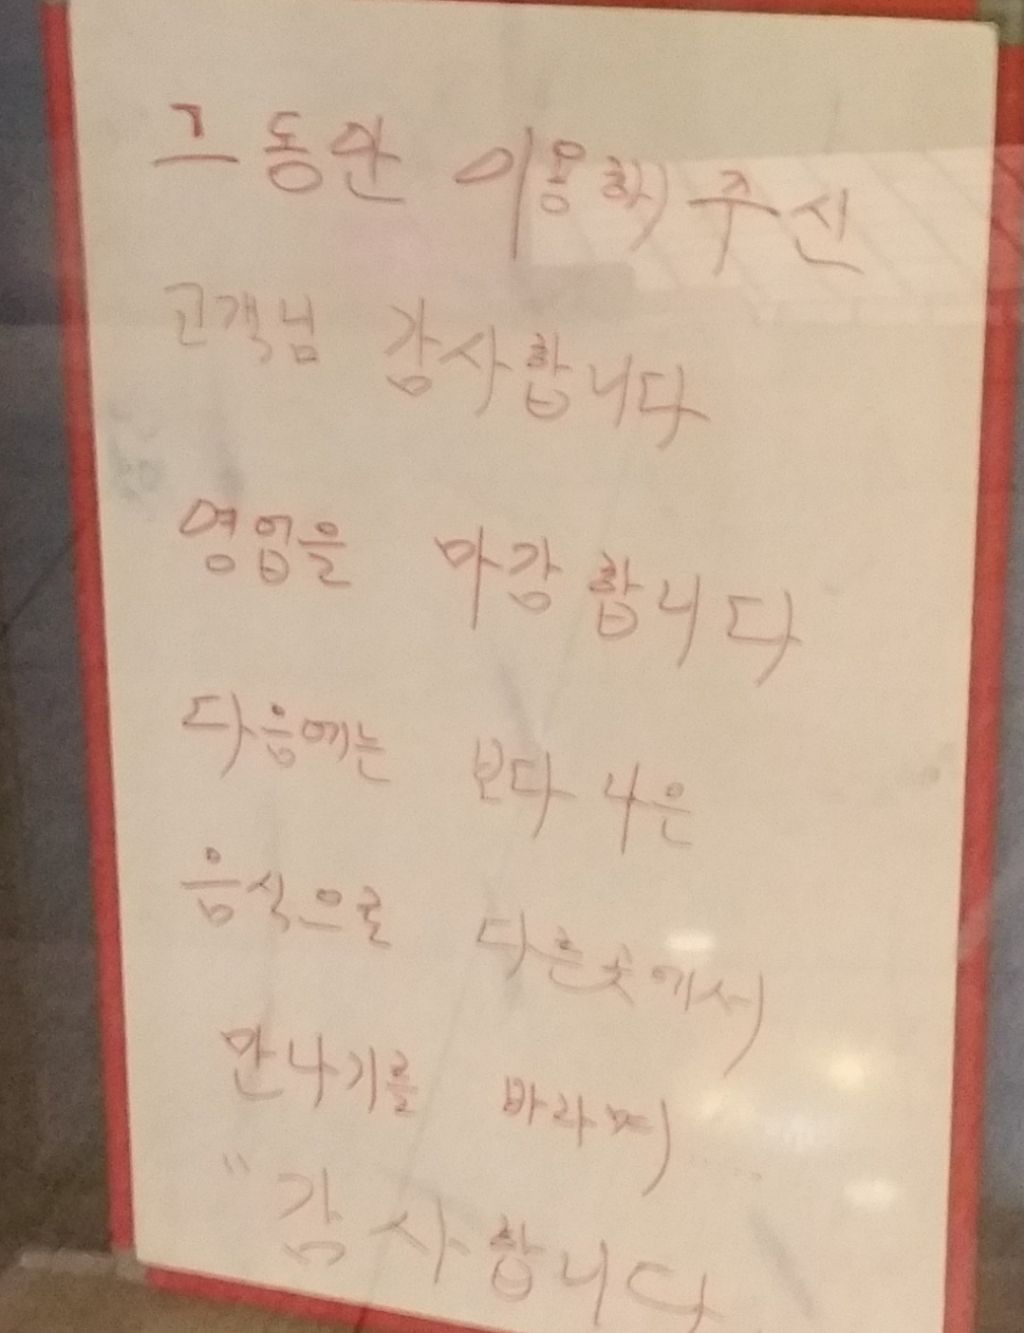 그동안 이용해 주신
고객님 감사합니다
영업을 마감합니다
다음에는 보다 나은
음식으로 다른곳에서
만나기를 바라며.....
"감사합니다